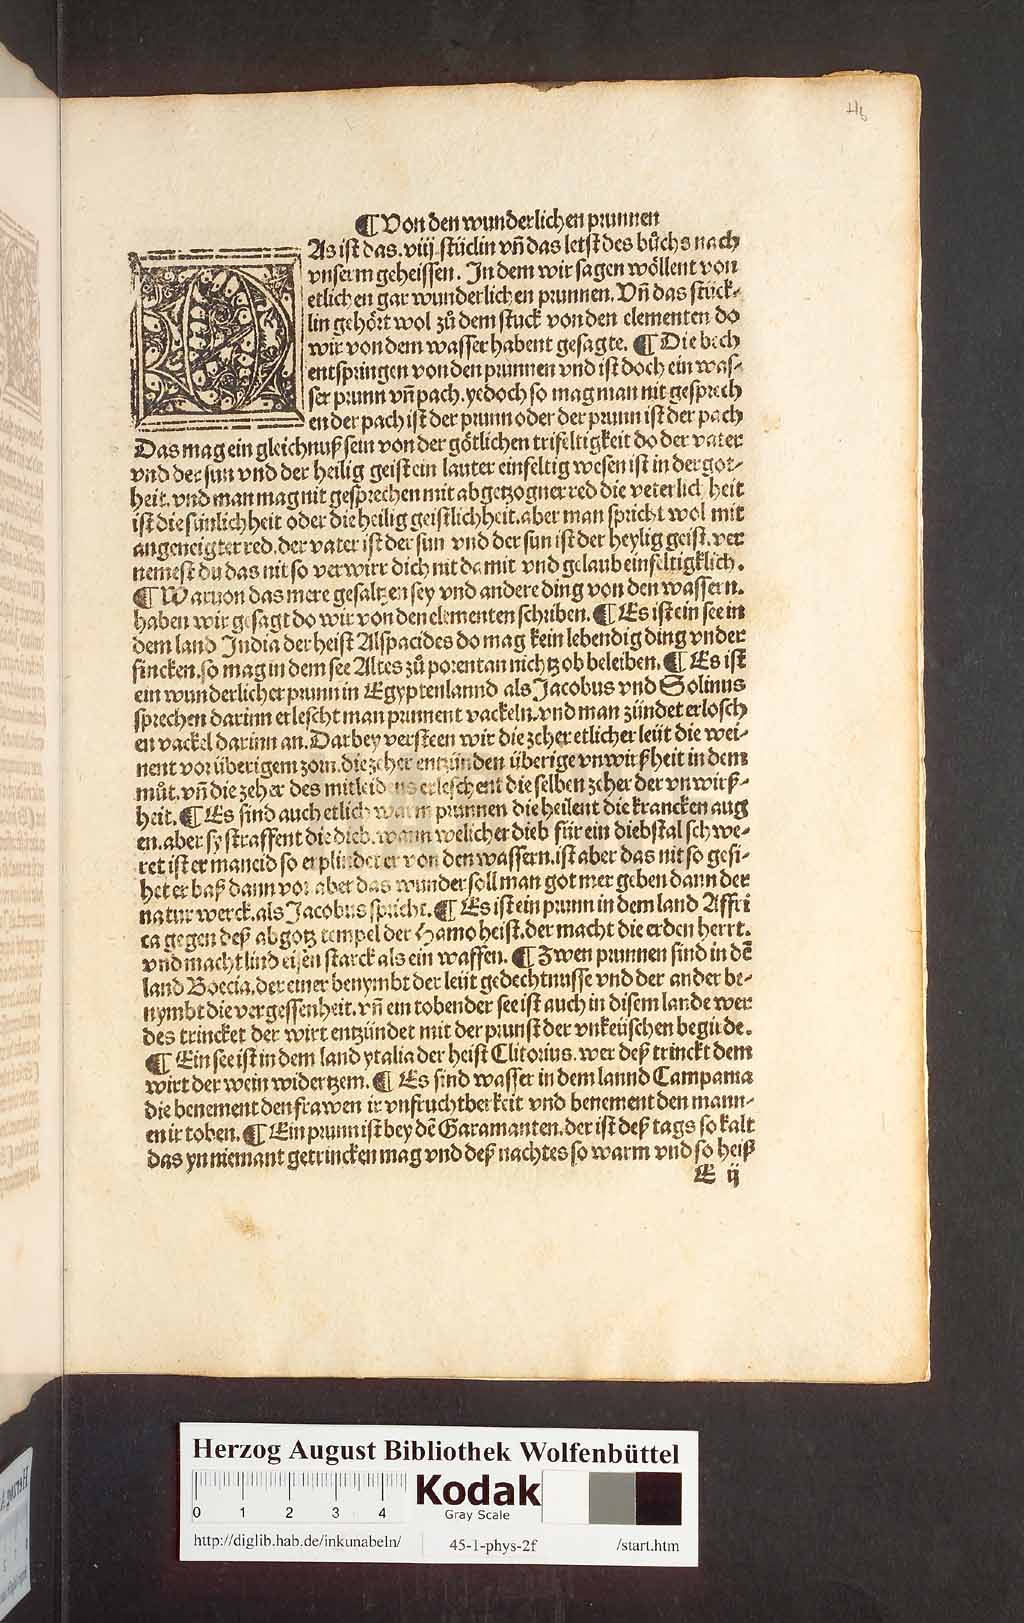 ¶ Von den wunderlichen prunnen
DAs ist das.viij.stücklin vñ das letst des bůchs nach
vnserm geheissen. In dem wir sagen wöllent von
etlichen gar wunderlichen prunnen. Vñ das stück-
lin gehört wol zů dem stuck von den elementen do
wir von dem wasser habent gesagte. ¶ Die bech
entspringen von den prunnen vnd ist doch ein was-
ser prunn vñ pach. yedoch so mag man nit gesprech
en der pach ist der prunn oder der prunn ist der pach
Das mag ein gleichnuß sein von der götlichen trifeltigkeit do der vater
vnd der sun vnd der heilig geist ein lauter einfeltig wesen ist in der got-
heit. vnd man mag nit gesprechen mit abgetzogner red die veterlich heit
ist die sünlichheit oder die heilig geistlichheit. aber man spricht wol mit
angeneigter red. der vater ist der sun vnd der sun ist der heylig geist. ver
nemest du das nit so verwirr dich nit da mit vnd gelaub einfeltigklich.
¶ Waruon das mere gesaltzen sey vnd andere ding von den wassern.
haben wir gesagt do wir von den elementen schriben. ¶ Es ist ein see in
dem land India der heist Alspacides do mag kein lebendig ding vnder
sincken. so mag in dem see Altes zů porentan nichtz ob beleiben. ¶ Es ist
ein wunderlicher prunn in Egyptenlannd als Jacobus vnd Solinus
sprechen darinn erlescht man prinnent vackeln. vnd man zündet erlosch
en vackel darinn an. Darbey versteen wir die zeher etlicher leüt die wei-
nent vor überigem zorn. die zeher entzünden überige vnwirßheit in dem
můt. vñ die zeher des mitleidens erleschent die selben zeher der vnwirß-
heit. ¶ Es sind auch etlich warm prunnen die heilent die krancken aug
en. aber sy straffent die dieb. wann welicher dieb für ein diebstal schwe-
ret ist er maneid so erplindet er von den wassern. ist aber das nit so gesi-
het er baß dann vor aber das wunder soll man got mer geben dann der
natur werck. als Jacobus spricht. ¶ Es ist ein prunn in dem land Affri
ca gegen deß abgotz tempel der Hamo heist. der macht die erden herrt.
vnd macht lind eisen starck als ein waffen. ¶ Zwen prunnen sind in dē
land Boecia. der einer benymbt der leüt gedechtnusse vnd der ander be-
nymbt die vergessenheit. vñ ein tobender see ist auch in disem lande wer
des trincket der wirt entzündet mit der prunst der vnkeüschen begirde.
¶ Ein see ist in dem land ytalia der heist Clitorius. wer deß trinckt dem
wirt der wein widertzem. ¶ Es sind wasser in dem lannd Campania
die benement den frawen ir vnfruchtberkeit vnd benement den mann-
en ir toben. ¶ Ein prunn ist bey dē Garamanten. der ist deß tags so kalt
das yn niemant getrincken mag vnd deß nachtes so warm vnd so heiß
E ij
Herzog August Bibliothek Wolfenbüttel
0 1 2 3 4
Kodak
Gray Scale
http://diglib.hab.de/inkunabeln/ 45-1-phys-2f /start.htm